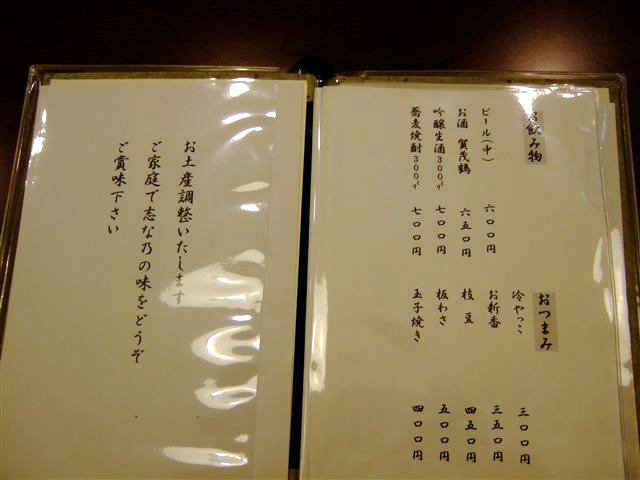 お飲み物
ビール(中) 六〇〇円
お酒 賀茂鶴 六五〇円
吟醸生酒300㎖ 七〇〇円
蕎麦焼酎300㎖ 七〇〇円
おつまみ
冷やっこ 三〇〇円
お新香 三五〇円
枝豆 四五〇円
板わさ 五〇〇円
玉子焼き 四〇〇円
お土産調整いたします
ご家庭で志な乃の味をどうぞ
ご賞味下さい